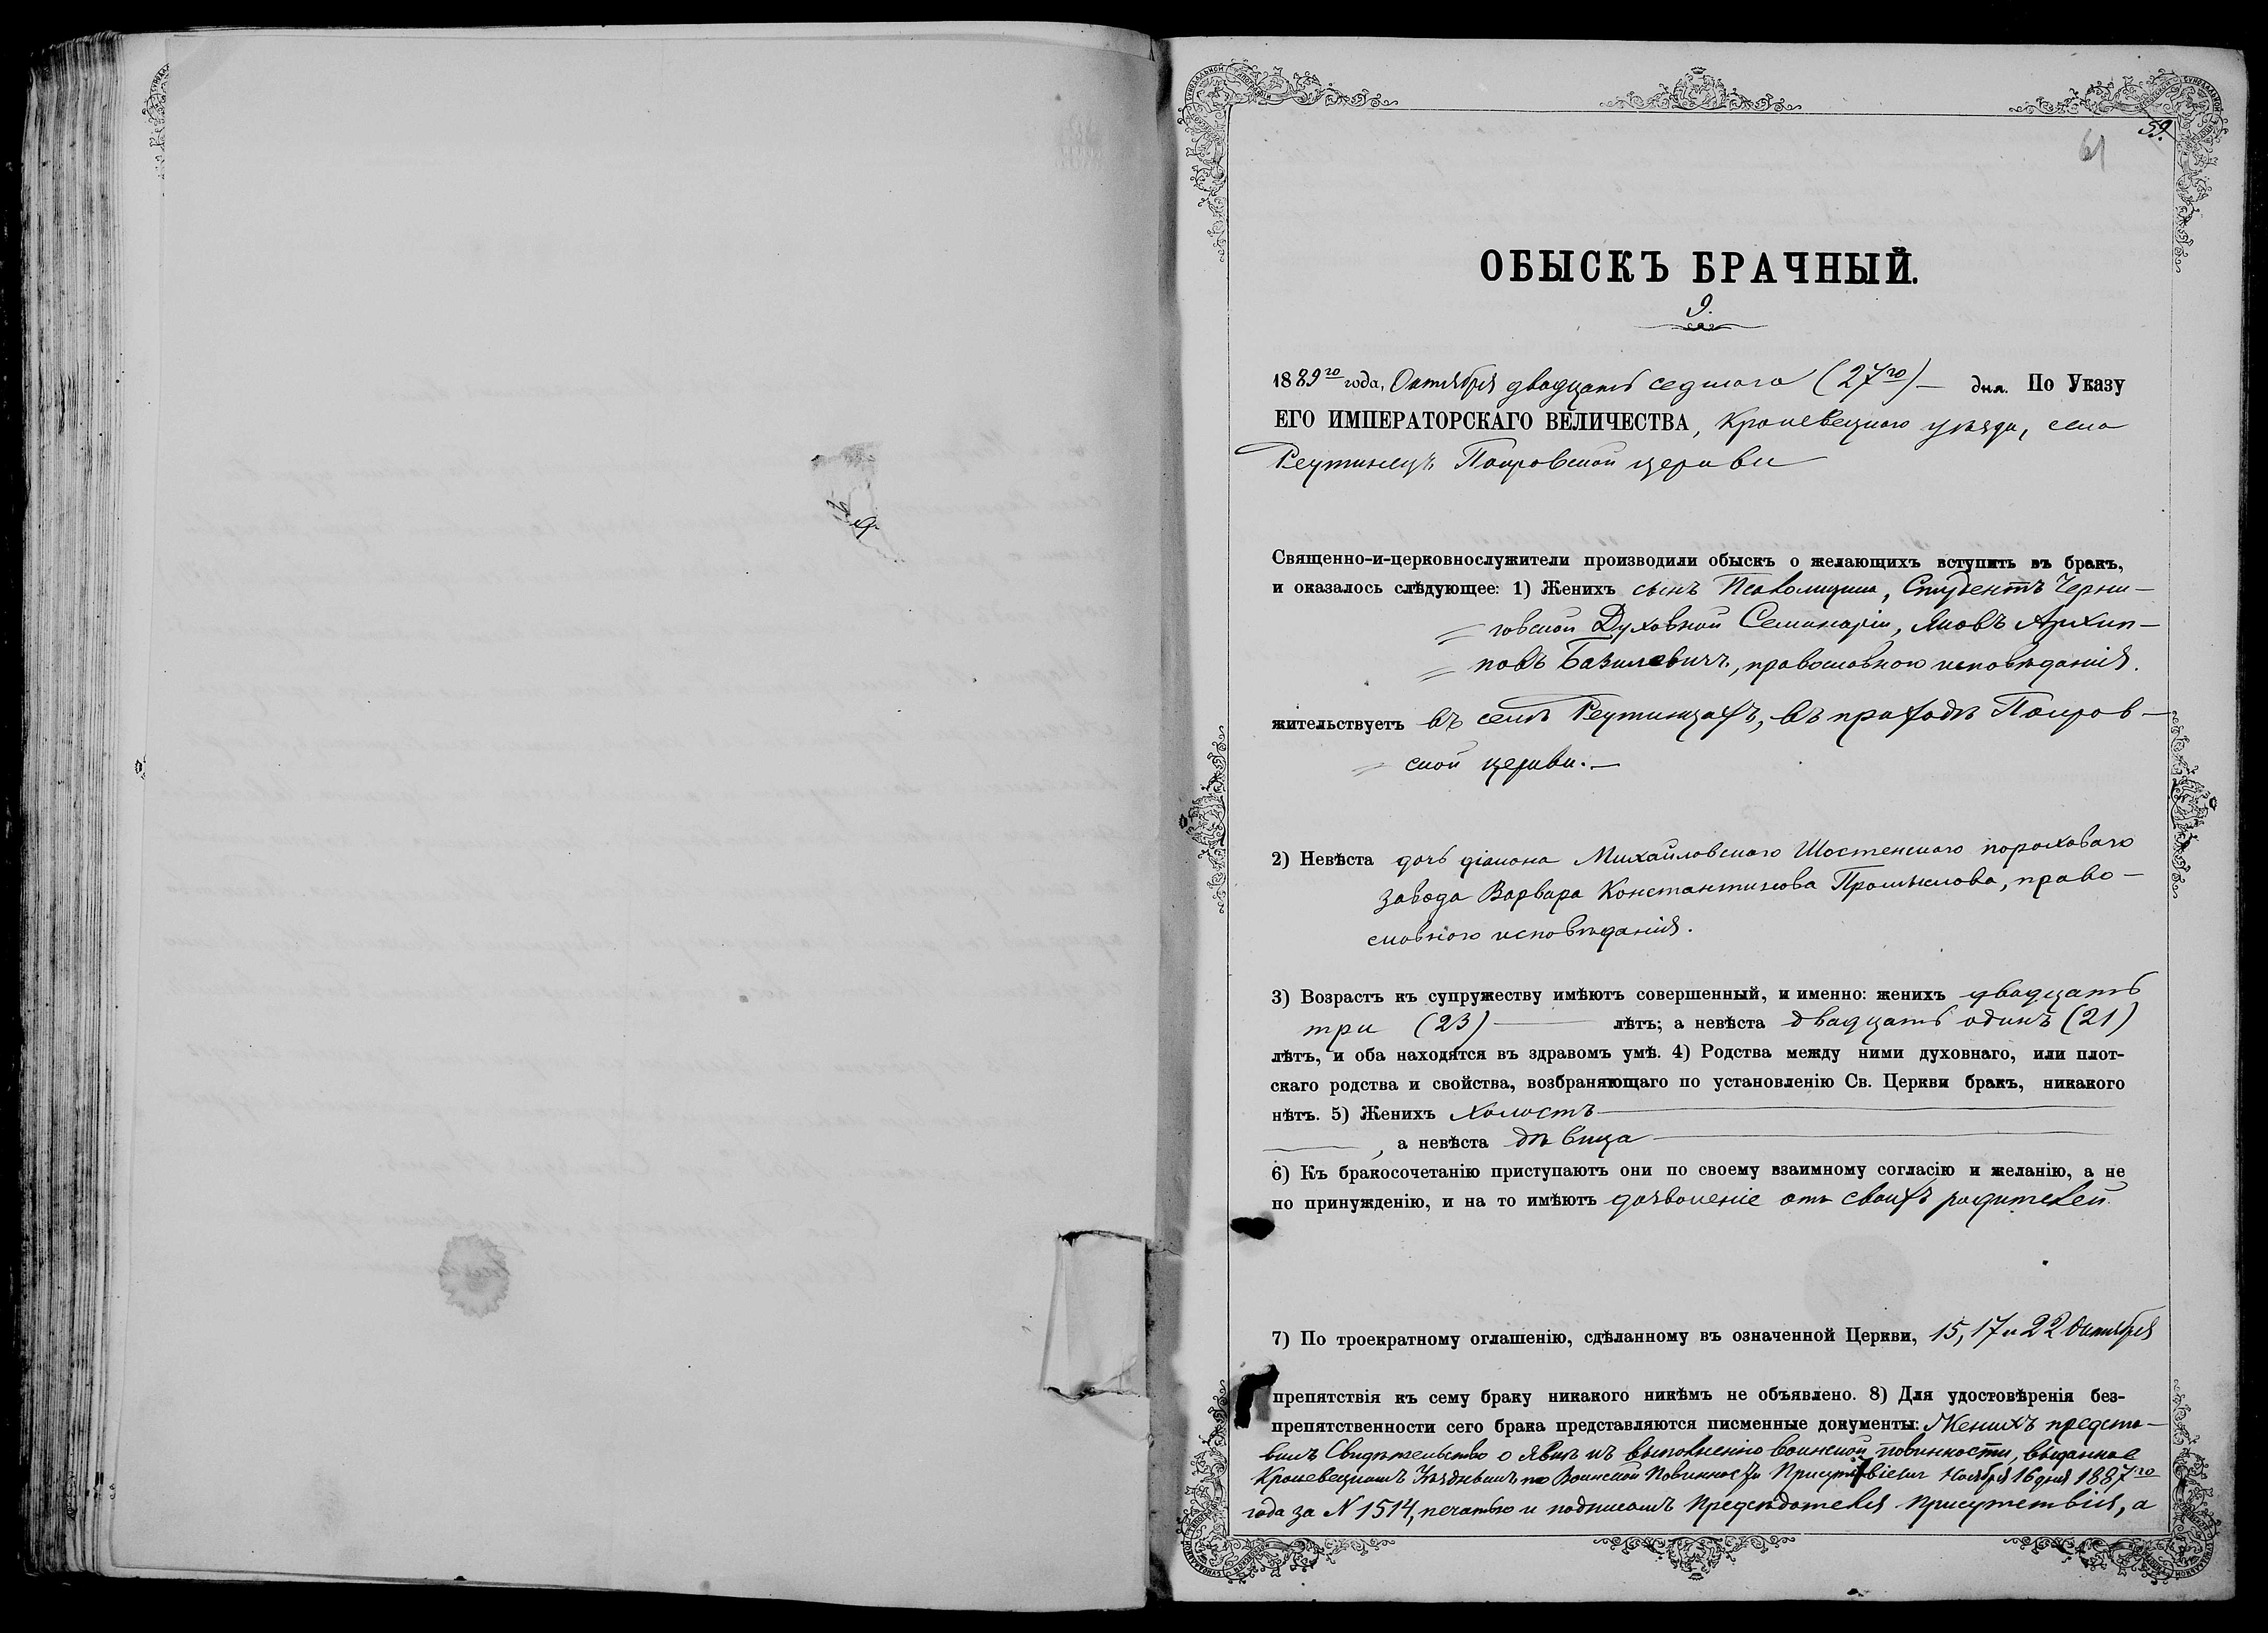 59.
61
ОБЫСКЪ БРАЧНЫЙ.
9.
1889го года, Октября двадцать седмого (27го) — дня. По Указу
ЕГО ИМПЕРАТОРСКАГО ВЕЛИЧЕСТВА, Кролевецкаго уѣзда, села
Реутинецъ Покровской церкви
Священно-и-церковнослужители производили обыскъ о желающихъ вступить въ бракъ,
и оказалось слѣдующее: 1) Женихъ сынъ Псаломщика, Студентъ Черни-
говской Духовной Семинаріи, Яковъ Архип-
повъ Базилевичъ, православнаго исповѣданія.
жительствуетъ въ селѣ Реутинцахъ, въ приходѣ Покров-
ской церкви. —
2) Невѣста дочь діакона Михайловскаго Шостенскаго пороховаго
завода Варвара Константинова Промыслова, право-
славнаго исповѣданія.
3) Возрастъ къ супружеству имѣютъ совершенный, и именно: женихъ двадцать
три (23) — лѣтъ; а невѣста двадцать одинъ (21)
лѣтъ, и оба находятся въ здравомъ умѣ. 4) Родства между ними духовнаго, или плот-
скаго родства и свойства, возбраняющаго по установленію Св. Церкви бракъ, никакого
нѣтъ. 5) Женихъ холостъ —
, а невѣста дѣвица —
6) Къ бракосочетанію приступаютъ они по своему взаимному согласію и желанію, а не
по принужденію, и на то имѣютъ дозволеніе отъ своихъ родителей.
7) По троекратному оглашенію, сдѣланному въ означенной Церкви, 15, 17 и 22 Октября
препятствія къ сему браку никакого никѣмъ не объявлено. 8) Для удостовѣренія без-
препятственности сего брака представляются писменные документы: Женихъ предста-
вилъ Свидѣтельство о явкѣ къ выполненію воинской повинности, выданное
Кролевецкимъ Уѣзднымъ по Воинской Повинности Присутствіемъ Ноября 16 дня 1887го
года за N 1514, печатью и подписомъ Предсѣдателя Присутствія, а